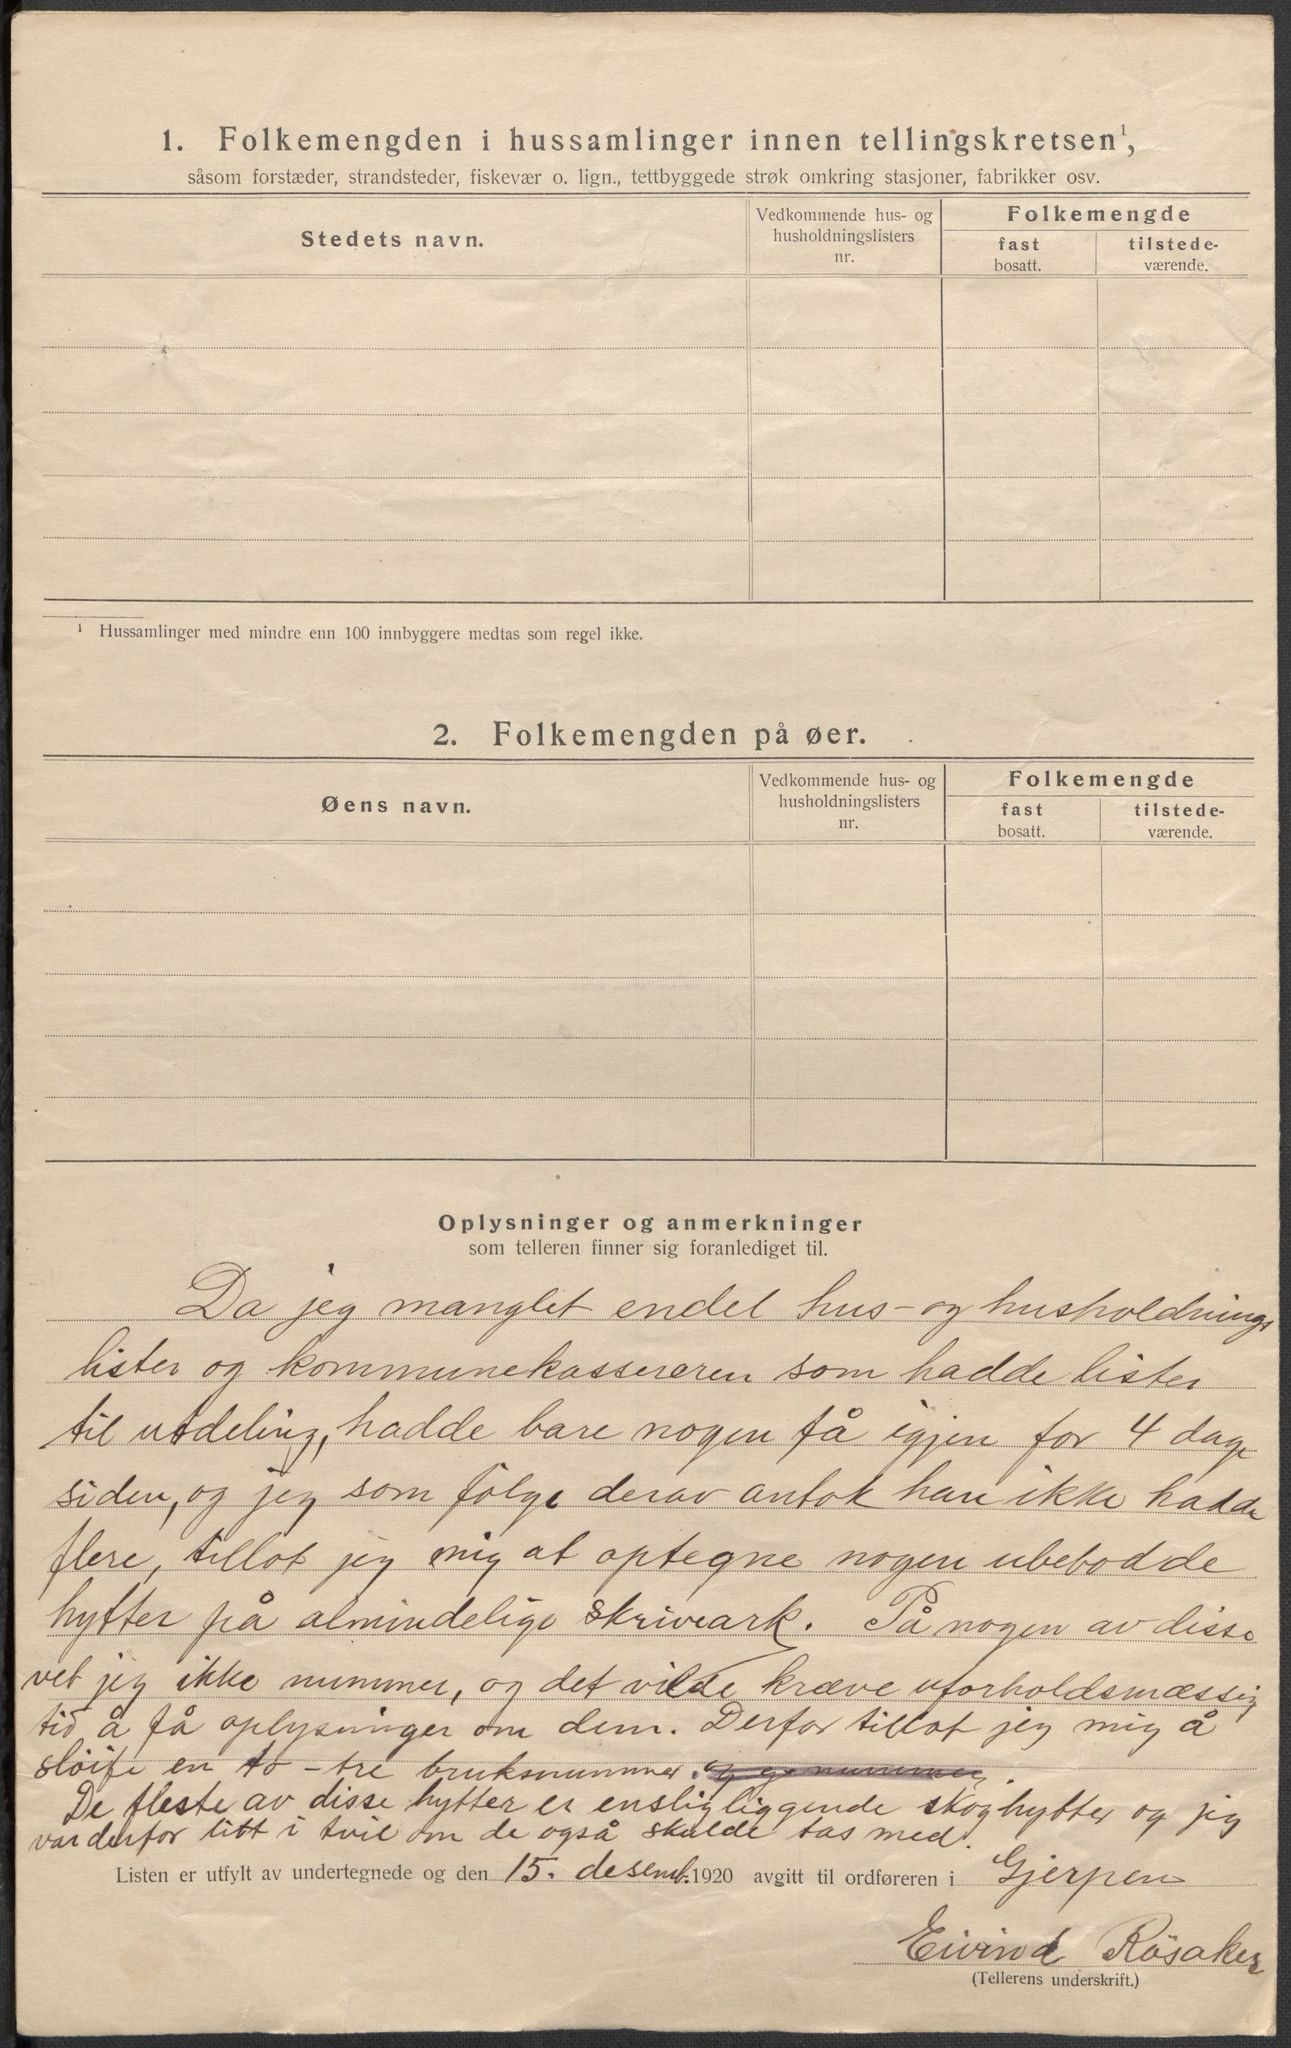 1. Folkemengden i hussamlinger innen tellingskretsen¹,
såsom forstæder, strandsteder, fiskevær o. lign., tettbyggede strøk omkring stasjoner, fabrikker osv.
Stedets navn.
Vedkommende hus- og
husholdningslisters
nr.
Folkemengde
fast
bosatt.
tilstede-
værende.
¹ Hussamlinger med mindre enn 100 innbyggere medtas som regel ikke.
2. Folkemengden på øer.
Øens navn.
Vedkommende hus- og
husholdningslisters
nr.
Folkemengde
fast
bosatt.
tilstede-
værende.
Oplysninger og anmerkninger
som telleren finner sig foranlediget til.
Da jeg manglet endel hus- og husholdnings
lister og kommunekassereren som hadde lister
til utdeling, hadde bare nogen få igjen for 4 dage
siden, og jeg som følge derav antok han ikke hadde
flere, tillot jeg mig at optegne nogen ubebodde
hytter på almindelige skriveark. På nogen av disse
vet jeg ikke nummer, og det vilde kræve uforholdsmæssig
tid å få oplysninger om dem. Derfor tillot jeg mig å
sløife en to-tre bruksnummer.
De fleste av disse hytter er ensligliggende skoghytter og jeg
var derfor litt i tvil om de også skulde tas med.
Listen er utfylt av undertegnede og den 15. desemb. 1920 avgitt til ordføreren i Gjerpen
Eivind Rösaker
(Tellerens underskrift.)